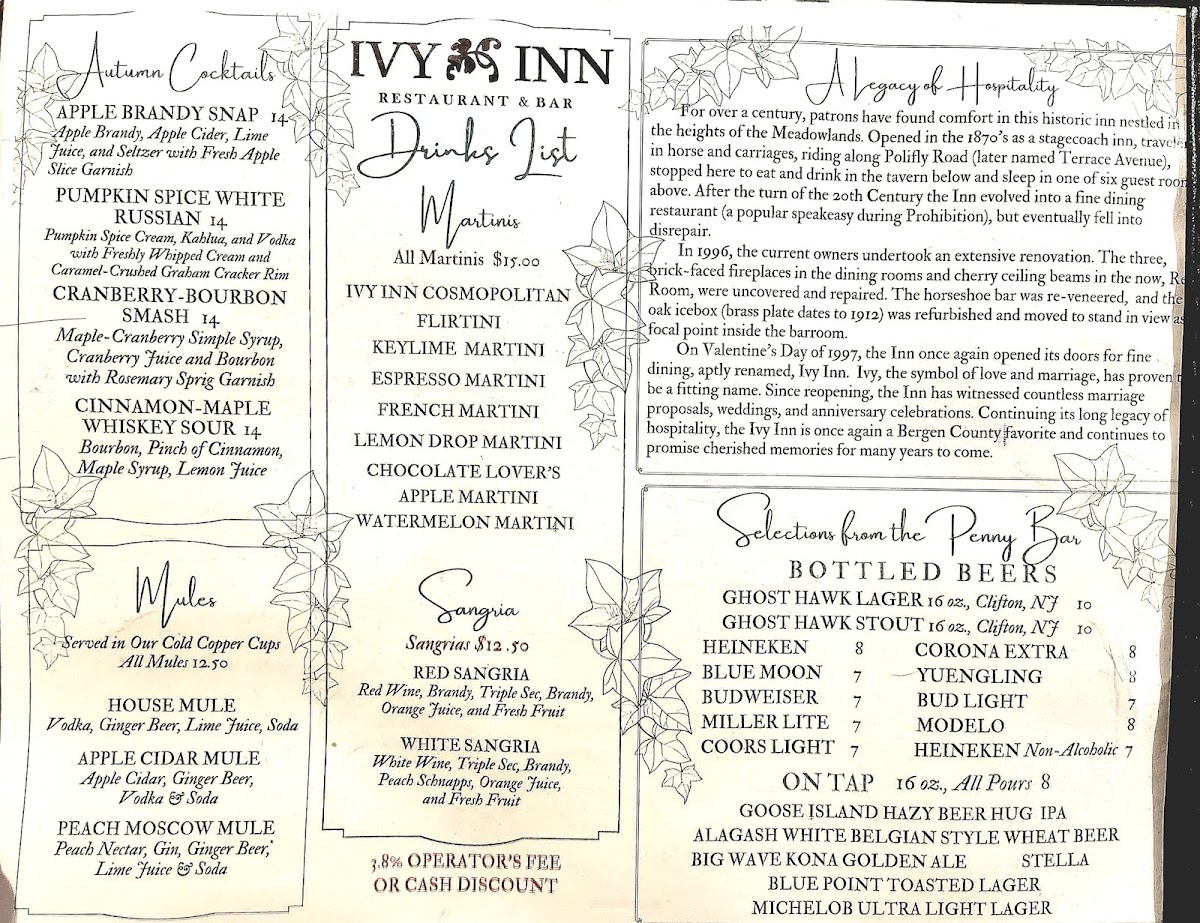 Autumn Cocktails
APPLE BRANDY SNAP 14
Apple Brandy, Apple Cider, Lime
Juice, and Seltzer with Fresh Apple
Slice Garnish
PUMPKIN SPICE WHITE
RUSSIAN 14
Pumpkin Spice Cream, Kahlua, and Vodka
with Freshly Whipped Cream and
Caramel-Crushed Graham Cracker Rim
CRANBERRY-BOURBON
SMASH 14
Maple-Cranberry Simple Syrup,
Cranberry Juice and Bourbon
with Rosemary Sprig Garnish
CINNAMON-MAPLE
WHISKEY SOUR 14
Bourbon, Pinch of Cinnamon,
Maple Syrup, Lemon Juice
Mules
Served in Our Cold Copper Cups
All Mules 12.50
HOUSE MULE
Vodka, Ginger Beer, Lime Juice, Soda
APPLE CIDAR MULE
Apple Cidar, Ginger Beer,
Vodka & Soda
PEACH MOSCOW MULE
Peach Nectar, Gin, Ginger Beer,
Lime Juice & Soda
IVY INN
RESTAURANT & BAR
Drinks List
Martinis
All Martinis $15.00
IVY INN COSMOPOLITAN
FLIRTINI
KEYLIME MARTINI
ESPRESSO MARTINI
FRENCH MARTINI
LEMON DROP MARTINI
CHOCOLATE LOVER'S
APPLE MARTINI
WATERMELON MARTINI
Sangria
Sangrias $12.50
RED SANGRIA
Red Wine, Brandy, Triple Sec, Brandy,
Orange Juice, and Fresh Fruit
WHITE SANGRIA
White Wine, Triple Sec, Brandy,
Peach Schnapps, Orange Juice,
and Fresh Fruit
3.8% OPERATOR'S FEE
OR CASH DISCOUNT
A Legacy of Hospitality
For over a century, patrons have found comfort in this historic inn nestled in
the heights of the Meadowlands. Opened in the 1870's as a stagecoach inn,
in horse and carriages, riding along Polifly Road (later named Terrace Avenue),
stopped here to eat and drink in the tavern below and sleep in one of six guest
above. After the turn of the 20th Century the Inn evolved into a fine dining
restaurant (a popular speakeasy during Prohibition), but eventually fell into
disrepair.
In 1996, the current owners undertook an extensive renovation. The three,
brick-faced fireplaces in the dining rooms and cherry ceiling beams in the now,
Room, were uncovered and repaired. The horseshoe bar was re-veneered, and the
oak icebox (brass plate dates to 1912) was refurbished and moved to stand in view as
focal point inside the barroom.
On Valentine's Day of 1997, the Inn once again opened its doors for fine
dining, aptly renamed, Ivy Inn. Ivy, the symbol of love and marriage, has proven
be a fitting name. Since reopening, the Inn has witnessed countless marriage
proposals, weddings, and anniversary celebrations. Continuing its long legacy of
hospitality, the Ivy Inn is once again a Bergen County favorite and continues to
promise cherished memories for many years to come.
Selections from the Penny Bar
BOTTLED BEERS
GHOST HAWK LAGER 16 oz., Clifton, NJ 10
GHOST HAWK STOUT 16 oz., Clifton, NJ 10
HEINEKEN 8 CORONA EXTRA 8
BLUE MOON 7 YUENGLING 8
BUDWEISER 7 BUD LIGHT 7
MILLER LITE 7 MODELO 8
COORS LIGHT 7 HEINEKEN Non-Alcoholic 7
ON TAP 16 oz., All Pours 8
GOOSE ISLAND HAZY BEER HUG IPA
ALAGASH WHITE BELGIAN STYLE WHEAT BEER
BIG WAVE KONA GOLDEN ALE STELLA
BLUE POINT TOASTED LAGER
MICHELOB ULTRA LIGHT LAGER